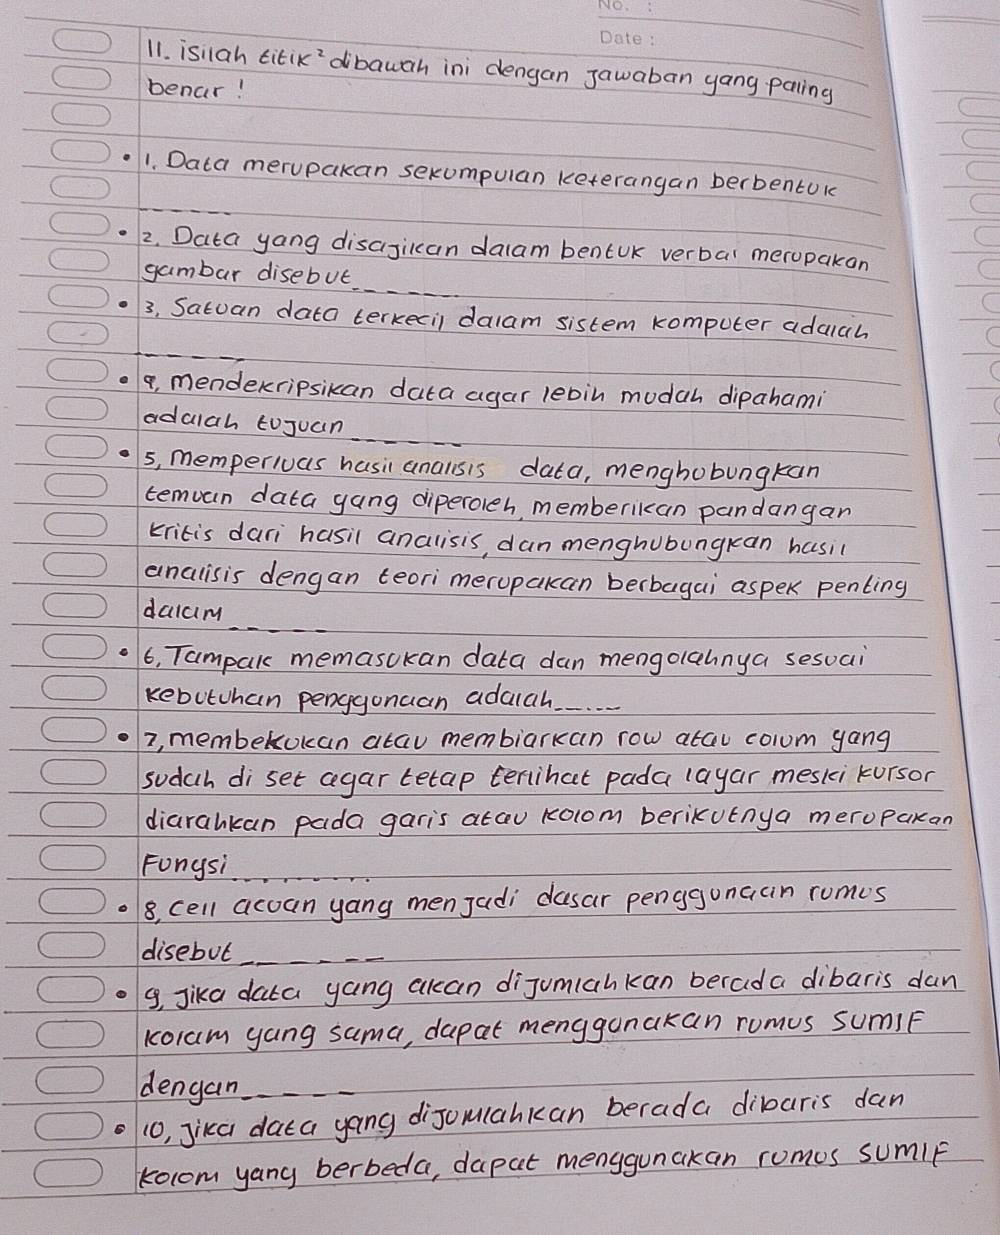 No. :
Date :
11. isilah titik² dibawah ini dengan jawaban yang paling
benar !
• 1. Data merupakan sekumpulan keterangan berbentuk
------
• 2. Data yang disajikan dalam bentuk verbal merupakan
gambar disebut------
• 3, Satuan data terkecil dalam sistem komputer adalah
------
• 4, mendekripsikan data agar lebih mudah dipahami
adalah tujuan ------
• 5, memperluas hasil analisis data, menghubungkan
temuan data yang diperoleh, memberikan pandangan
kritis dari hasil analisis, dan menghubungkan hasil
analisis dengan teori merupakan berbagai aspek penting
dalam -----
• 6, Tampak memasukan data dan mengolahnya sesuai
kebutuhan penggunaan adalah-----
• 7, membekukan atau membiarkan row atau colum yang
sudah di set agar tetap terlihat pada layar meski kursor
diarahkan pada garis atau kolom berikutnya merupakan
Fungsi ........
• 8, cell acuan yang menjadi dasar penggunaan rumus
disebut ------
• 9, jika data yang akan dijumlahkan berada dibaris dan
kolam yang sama, dapat menggunakan rumus SUMIF
dengan -----
• 10, jika data yang dijumlahkan berada dibaris dan
kolom yang berbeda, dapat menggunakan rumus SUMIF